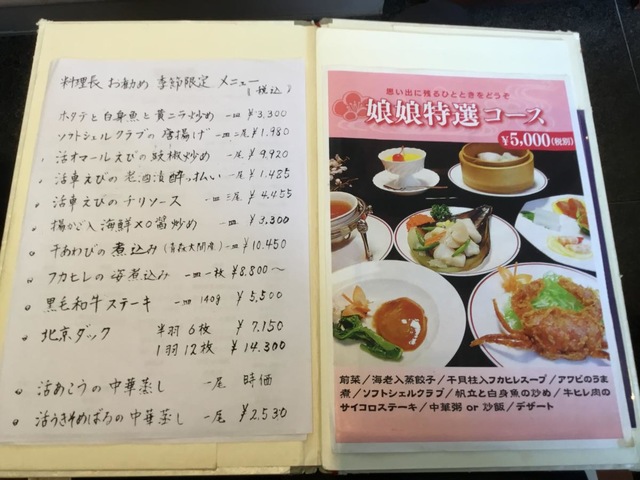 料理長 お勧め 季節限定 メニュー
(税込)
ホタテと白身魚と黄ニラ炒め 一皿 ¥3,300
ソフトシェルクラブの唐揚げ 一皿二尾 ¥1,980
活オマールえびの豉椒炒め 一尾 ¥9,920
活車えびの老酒漬酔っ払い 一尾 ¥1,485
活車えびのチリソース 一皿 三尾 ¥4,455
揚かご入海鮮XO醤炒め 一皿 ¥3,300
干あわびの煮込み(青森大間産)一皿 ¥10,450
フカヒレの姿煮込み 一皿一枚 ¥8,800〜
黒毛和牛ステーキ 一皿 140g ¥5,500
北京ダック 半羽 6枚 ¥7,150
1羽 12枚 ¥14,300
活あこうの中華蒸し 一尾 時価
活うきそめばるの中華蒸し 一尾 ¥2,530
思い出に残るひとときをどうぞ
娘娘特選コース
¥5,000(税別)
前菜/海老入蒸餃子/干貝柱入フカヒレスープ/アワビのうま
煮/ソフトシェルクラブ/帆立と白身魚の炒め/牛ヒレ肉の
サイコロステーキ/中華粥 or 炒飯/デザート